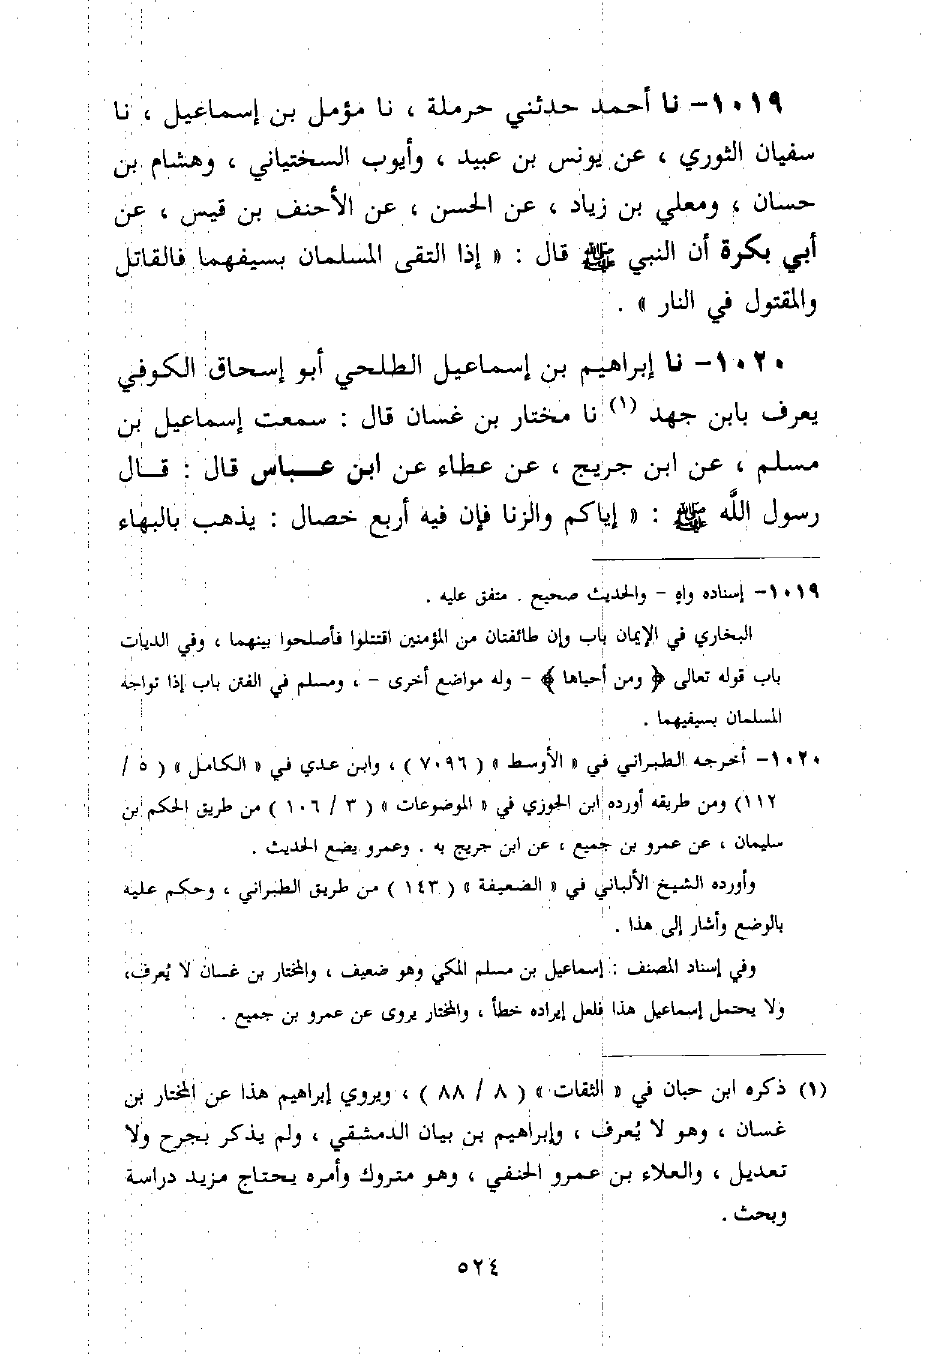 ١٠١٩- نا أحمد حدثني حرملة ، نا مؤمل بن إسماعيل ، نا
سفيان الثوري ، عن يونس بن عبيد ، وأيوب السختياني ، وهشام بن
حسان ، ومعلي بن زياد ، عن الحسن ، عن الأحنف بن قيس ، عن
أبي بكرة أن النبي ﷺ قال : « إذا التقى المسلمان بسيفهما فالقاتل
والمقتول في النار » .
١٠٢٠- نا إبراهيم بن إسماعيل الطلحي أبو إسحاق الكوفي
يعرف بابن جهد (١) نا مختار بن غسان قال : سمعت إسماعيل بن
مسلم ، عن ابن جريج ، عن عطاء عن ابن عباس قال : قال
رسول اللَّه ﷺ : « إياكم والزنا فإن فيه أربع خصال : يذهب بالبهاء
١٠١٩- إسناده واهٍ - والحديث صحيح . متفق عليه .
البخاري في الإيمان باب وإن طائفتان من المؤمنين اقتتلوا فأصلحوا بينهما ، وفي الديات
باب قوله تعالى ﴿ ومن أحياها ﴾ - وله مواضع أخرى - ، ومسلم في الفتن باب إذا تواجه
المسلمان بسيفيهما .
١٠٢٠- أخرجه الطبراني في « الأوسط » ( ٧٠٩٦ ) ، وابن عدي في « الكامل » ( ٥ /
١١٢) ومن طريقه أورده ابن الجوزي في « الموضوعات » ( ٣ / ١٠٦ ) من طريق الحكم بن
سليمان ، عن عمرو بن جميع ، عن ابن جريج به . وعمرو يضع الحديث .
وأورده الشيخ الألباني في « الضعيفة » ( ١٤٣ ) من طريق الطبراني ، وحكم عليه
بالوضع وأشار إلى هذا .
وفي إسناد المصنف : إسماعيل بن مسلم المكي وهو ضعيف ، والمختار بن غسان لا يُعرف،
ولا يحتمل إسماعيل هذا فلعل إيراده خطأ ، والمختار يروى عن عمرو بن جميع .
(١) ذكره ابن حبان في « الثقات » ( ٨ / ٨٨ ) ، ويروي إبراهيم هذا عن المختار بن
غسان ، وهو لا يُعرف ، وإبراهيم بن بيان الدمشقي ، ولم يذكر بجرح ولا
تعديل ، والعلاء بن عمرو الحنفي ، وهو متروك وأمره يحتاج مزيد دراسة
وبحث .
٥٢٤